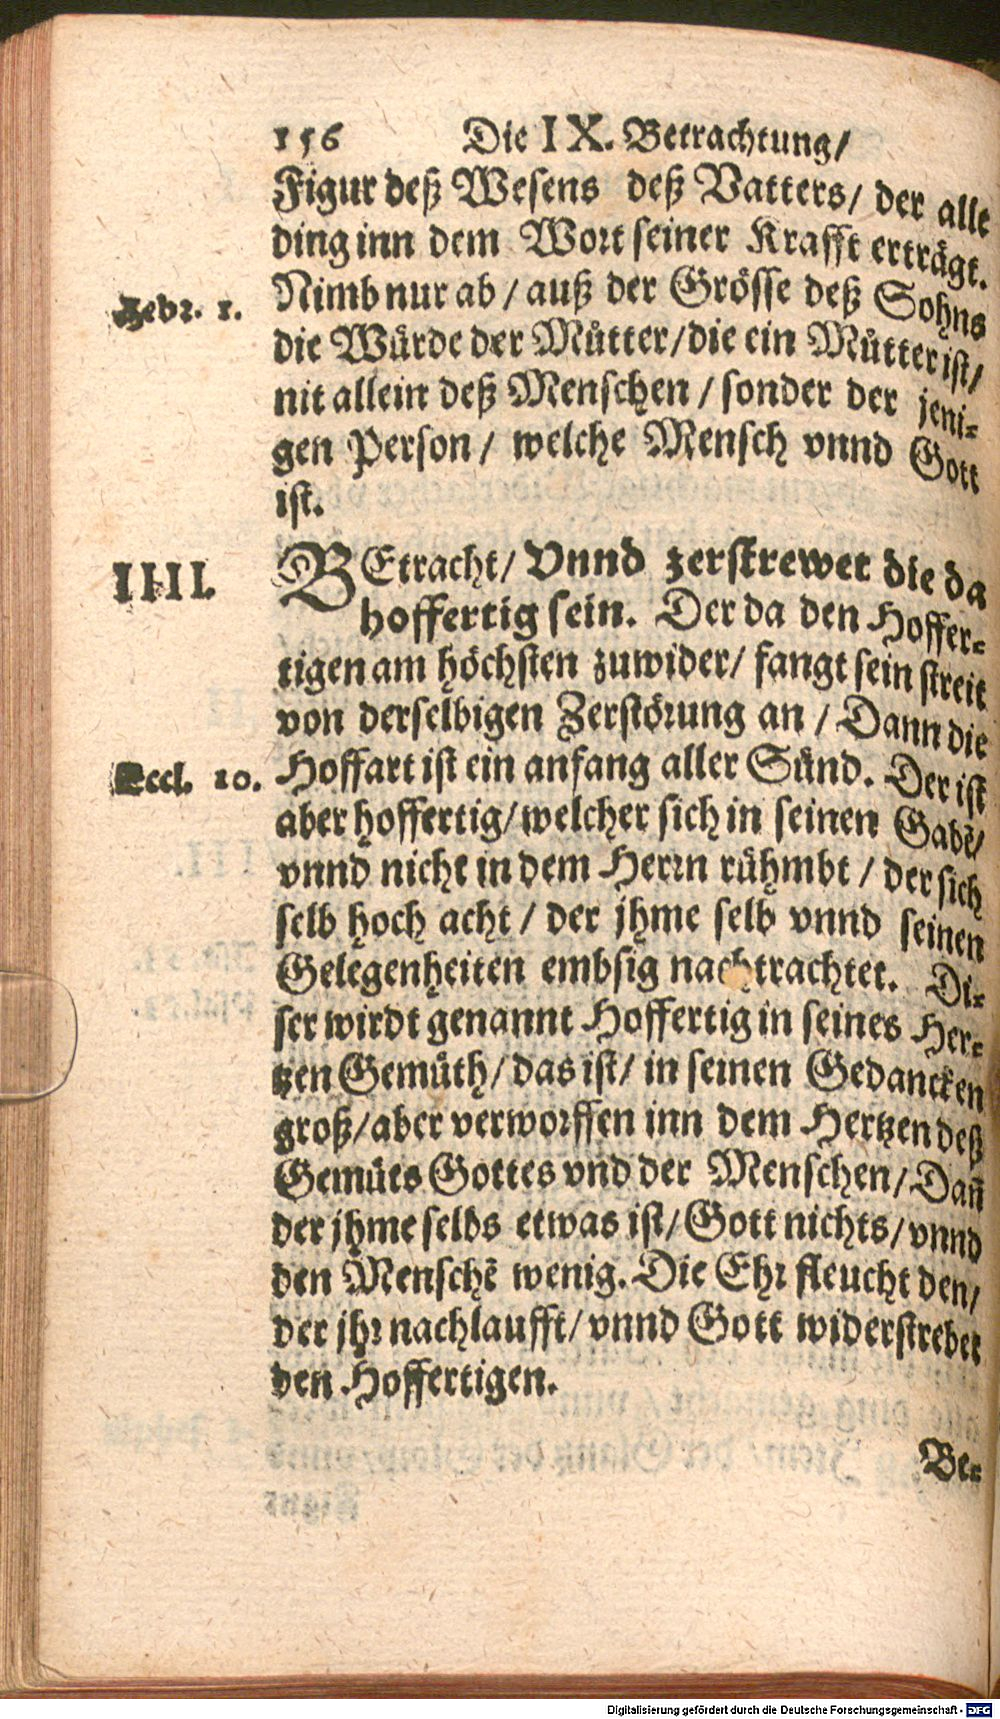 156 Die IX. Betrachtung/
Figur deß Wesens deß Vatters/ der alle
ding inn dem Wort seiner Krafft erträgt.
Hebr. 1.
Nimb nur ab / auß der Grösse deß Sohns
die Würde der Můtter/die ein Můtter ist/
nit allein deß Menschen / sonder der jeni-
gen Person / welche Mensch vnnd Gott
ist.
IIII.
BEtracht/ Vnnd zerstrewet die da
hoffertig sein. Der da den Hoffer-
tigen am höchsten zuwider/ fangt sein streit
von derselbigen Zerstörung an / Dann die
Eccl. 10.
Hoffart ist ein anfang aller Sünd. Der ist
aber hoffertig/welcher sich in seinen Gabē/
vnnd nicht in dem Herrn rühmbt / der sich
selb hoch acht / der jhme selb vnnd seinen
Gelegenheiten embsig nachtrachtet. Di-
ser wirdt genannt Hoffertig in seines Her-
tzen Gemüth/ das ist/ in seinen Gedancken
groß/aber verworffen inn dem Hertzen deß
Gemüts Gottes vnd der Menschen/ Dañ
der jhme selbs etwas ist/ Gott nichts/ vnnd
den Menschē wenig. Die Ehr fleucht den/
der jhr nachlaufft/ vnnd Gott widerstrebet
den Hoffertigen.
Be-
Digitalisierung gefördert durch die Deutsche Forschungsgemeinschaft - DFG